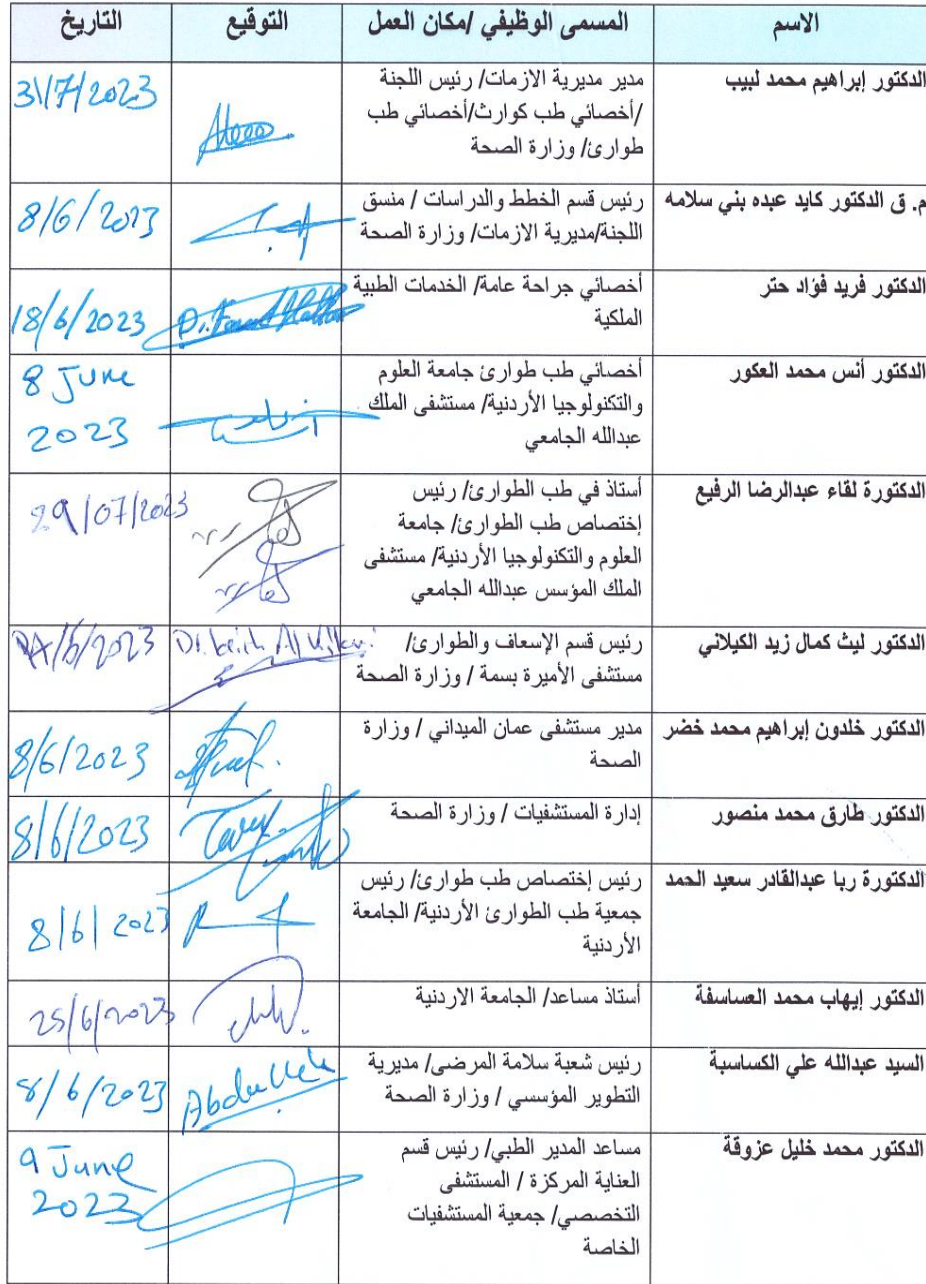 الاسم المسمى الوظيفي /مكان العمل التوقيع التاريخ
الدكتور إبراهيم محمد لبيب مدير مديرية الازمات/ رئيس اللجنة 31/7/2023
/أخصائي طب كوارث/أخصائي طب
طوارئ/ وزارة الصحة
م. ق الدكتور كايد عبده بني سلامه رئيس قسم الخطط والدراسات / منسق 8/6/2023
اللجنة/مديرية الازمات/ وزارة الصحة
الدكتور فريد فؤاد حتر أخصائي جراحة عامة/ الخدمات الطبية 18/6/2023
الملكية
الدكتور أنس محمد العكور أخصائي طب طوارئ جامعة العلوم 8 June
والتكنولوجيا الأردنية/ مستشفى الملك 2023
عبدالله الجامعي
الدكتورة لقاء عبدالرضا الرفيع أستاذ في طب الطوارئ/ رئيس 29/07/2023
إختصاص طب الطوارئ/ جامعة
العلوم والتكنولوجيا الأردنية/ مستشفى
الملك المؤسس عبدالله الجامعي
الدكتور ليث كمال زيد الكيلاني رئيس قسم الإسعاف والطوارئ/
مستشفى الأميرة بسمة / وزارة الصحة
الدكتور خلدون إبراهيم محمد خضر مدير مستشفى عمان الميداني / وزارة 8/6/2023
الصحة
الدكتور طارق محمد منصور إدارة المستشفيات / وزارة الصحة 8/6/2023
الدكتورة ربا عبدالقادر سعيد الحمد رئيس إختصاص طب طوارئ/ رئيس 8/6/2023
جمعية طب الطوارئ الأردنية/ الجامعة
الأردنية
الدكتور إيهاب محمد العساسفة أستاذ مساعد/ الجامعة الاردنية 25/6/2023
السيد عبدالله علي الكساسبة رئيس شعبة سلامة المرضى/ مديرية Abdullah 8/6/2023
التطوير المؤسسي / وزارة الصحة
الدكتور محمد خليل عزوقة مساعد المدير الطبي/ رئيس قسم 9 June
العناية المركزة / المستشفى 2023
التخصصي/ جمعية المستشفيات
الخاصة